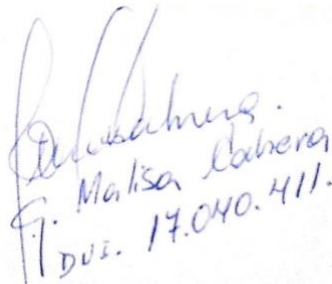 G. Malisa Cabrera
DUI. 17.040.411.